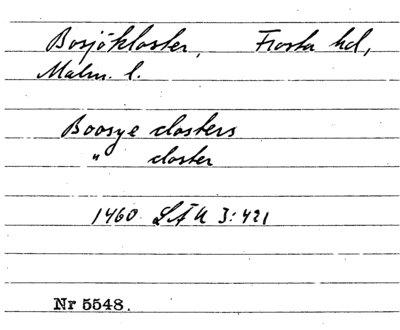 Bosjökloster, Frosta hd,
Malm. l.
Boosye closters
" closter
1460 LÄU 3:421
Nr 5548.